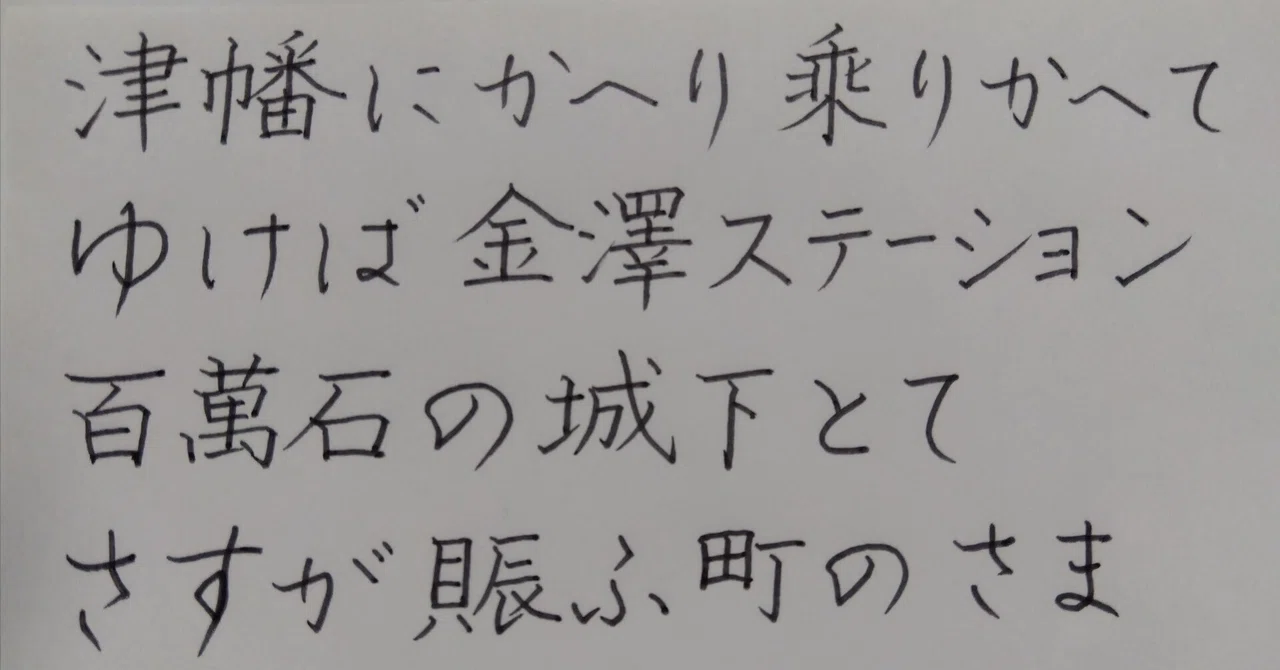 津幡にかへり乗りかへて
ゆけば金澤ステーション
百萬石の城下とて
さすが賑ふ町のさま